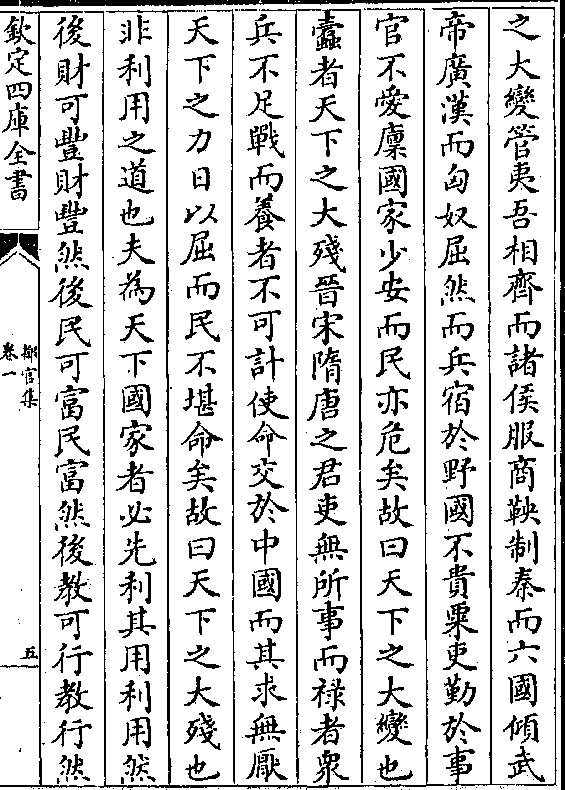 之大變管夷吾相齊而諸侯服商鞅制秦而六國傾武
帝廣漢而匈奴屈然而兵宿於野國不貴粟吏勤於事
官不愛廪國家少安而民亦危矣故曰天下之大變也
蠧者天下之大殘晉宋隋唐之君吏無所事而禄者衆
兵不足戰而養者不可計使命交於中國而其求無厭
天下之力日以屈而民不堪命矣故曰天下之大殘也
非利用之道也夫為天下國家者必先利其用利用然
後財可豐財豐然後民可富民富然後教可行教行然
欽定四庫全書
卷一
五